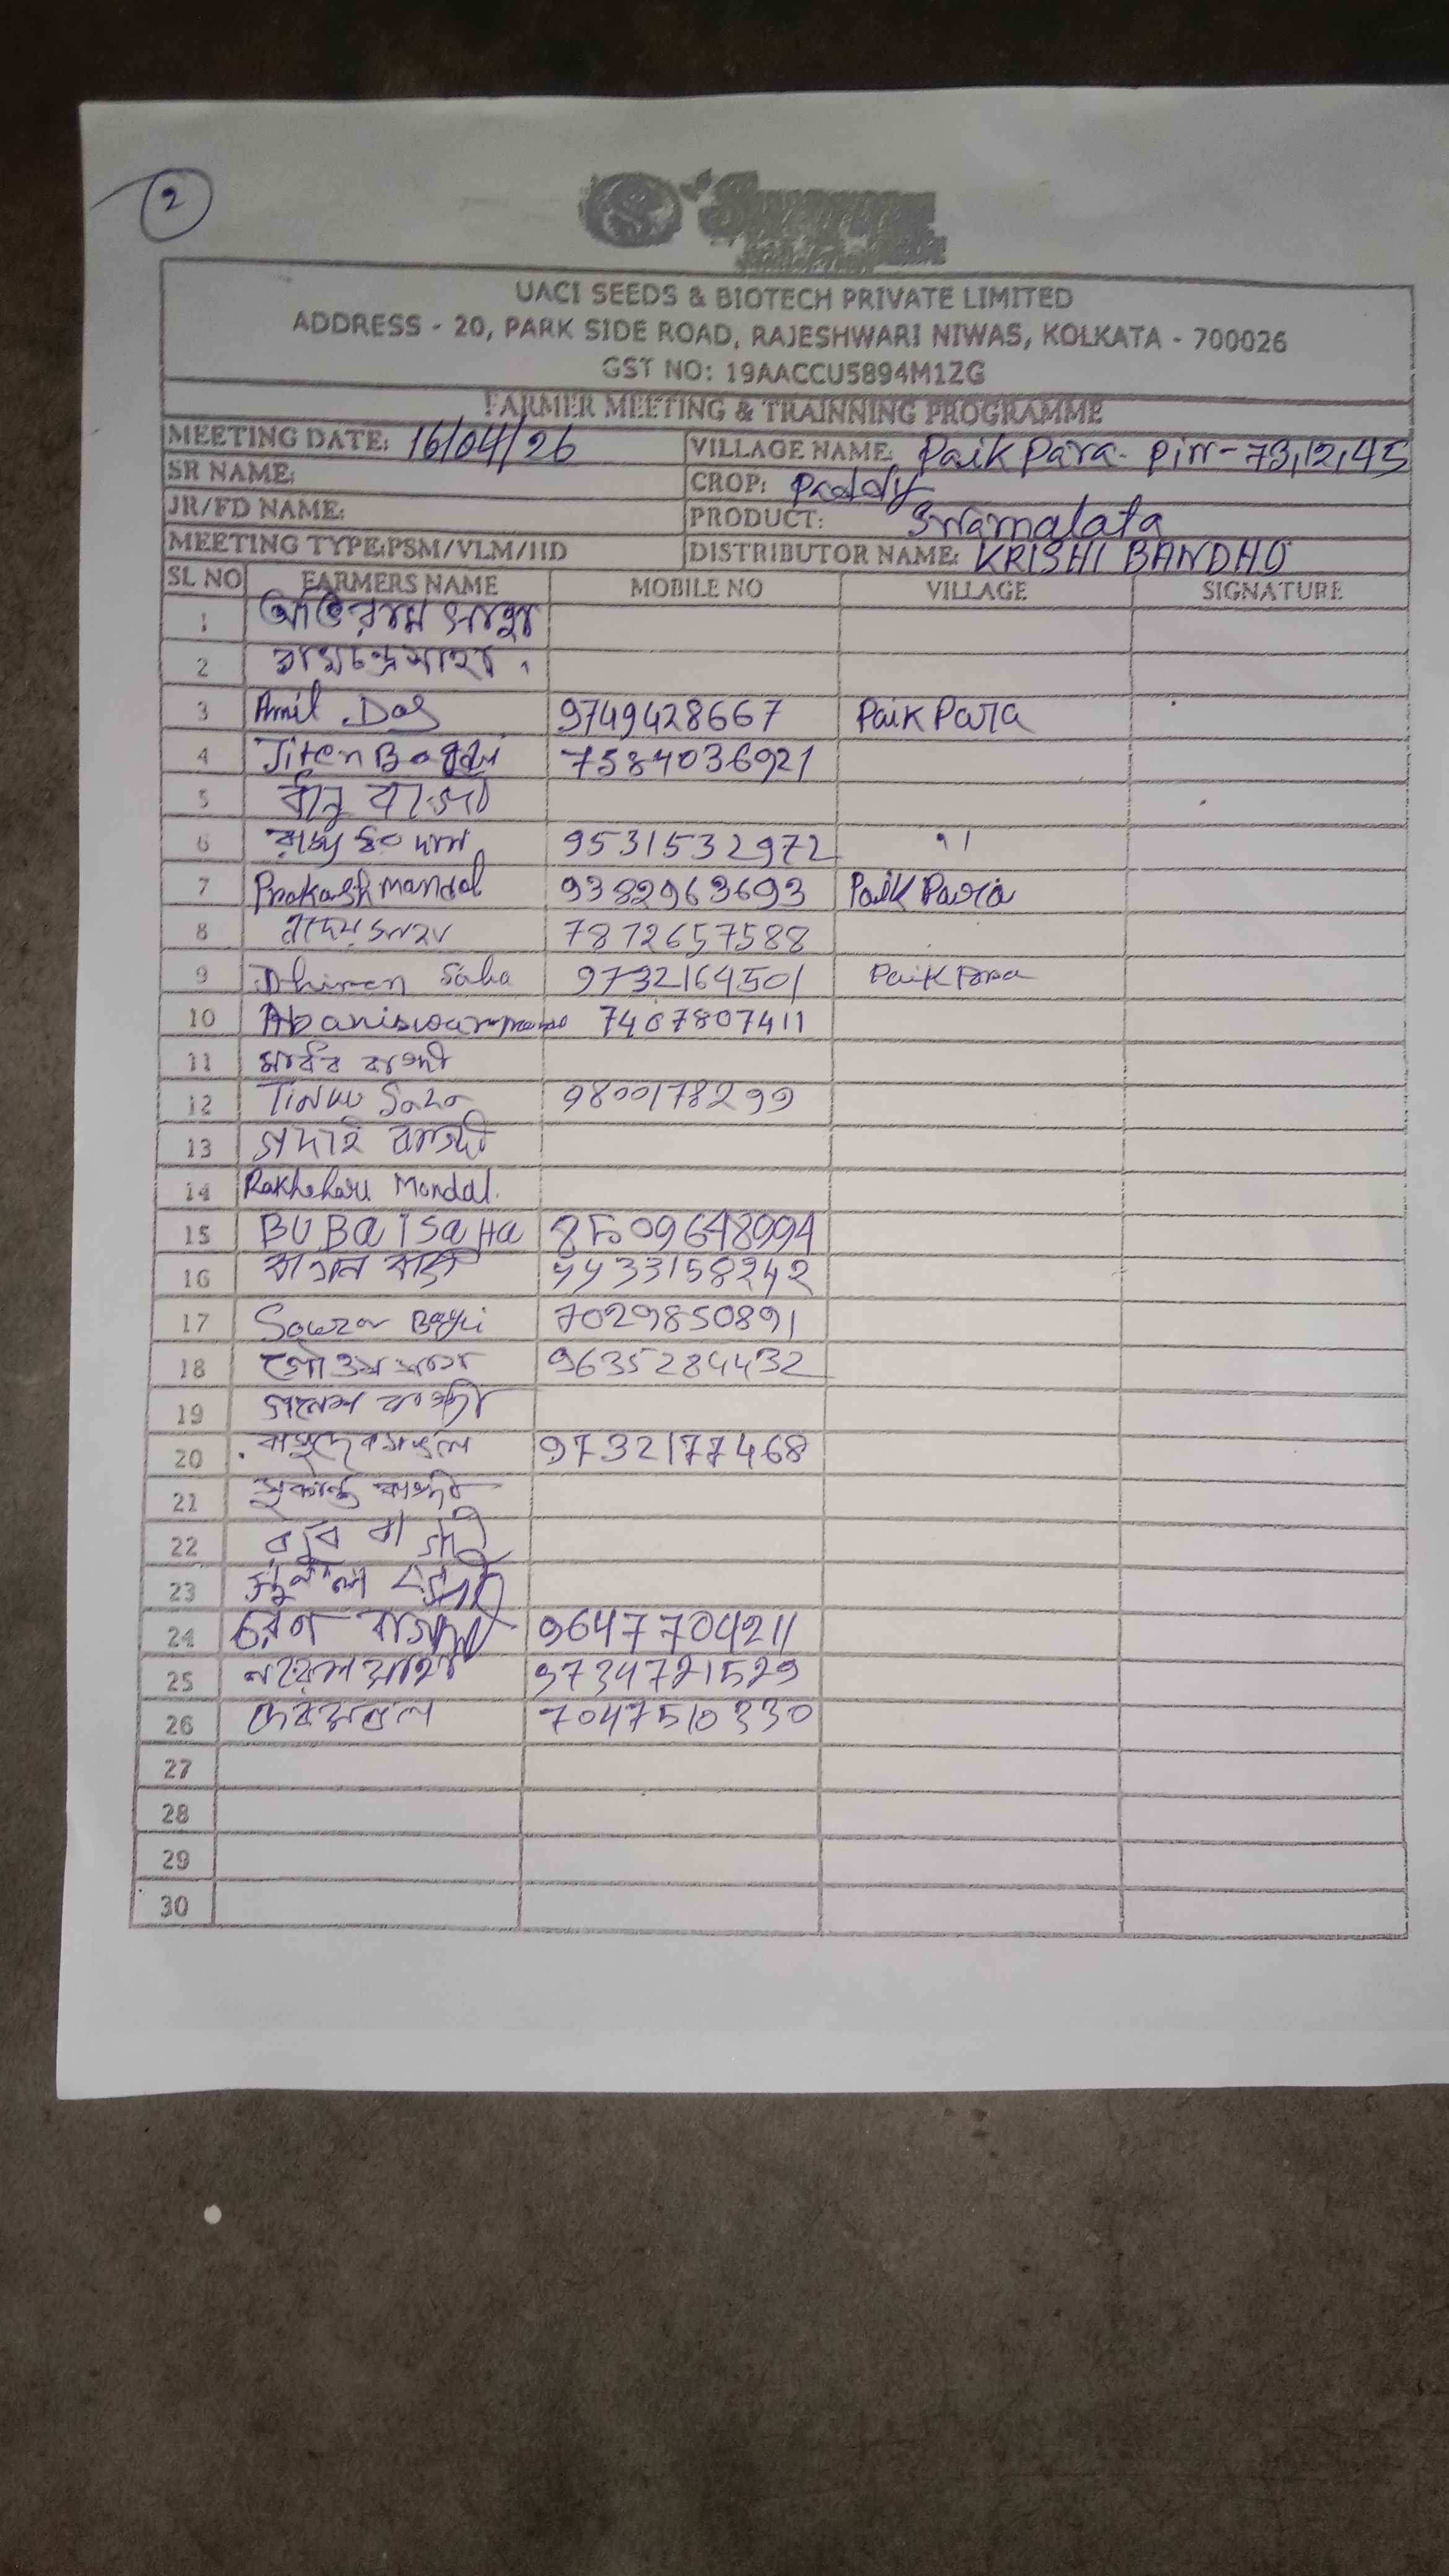 2
UACI SEEDS & BIOTECH PRIVATE LIMITED
ADDRESS - 20, PARK SIDE ROAD, RAJESHWARI NIWAS, KOLKATA - 700026
GST NO: 19AACCU5894M1ZG
FARMER MEETING & TRAINNING PROGRAMME
MEETING DATE: 16/04/26 VILLAGE NAME: Paik Para - Pin - 73,12,45
SR NAME: CROP: Paddy
JR/FD NAME: PRODUCT: Swarnalata
MEETING TYPE:PSM/VLM/IID DISTRIBUTOR NAME: KRISHI BANDHO
SL NO FARMERS NAME MOBILE NO VILLAGE SIGNATURE
1 অভিরাম সাহা
2 রামচন্দ্র সাহা
3 Amil Das 9749428667 Paik Para
4 Jiten Bagdi 7584036921
5
6 দাস 9531532972 "
7 Prakash Mandal 9382963693 Paik Para
8 সাহা 7872657588
9 Dhiren Saha 9732164501 Paik Para
10 7407807411
11 বাগদী
12 Tinku Saha 9800178299
13 গদাই বাগদী
14 Rakhehari Mondal.
15 BUBaI SaHa 8509648994
16 9933158242
17 Sourav Bagdi 7029850891
18 9635284432
19 গনেশ বাগদী
20 বাসুদেব মণ্ডল 9732177468
21 সুকান্ত বাগদী
22
23
24 চরণ বাগদী 9647704211
25 সাহা 9734721529
26 7047510330
27
28
29
30